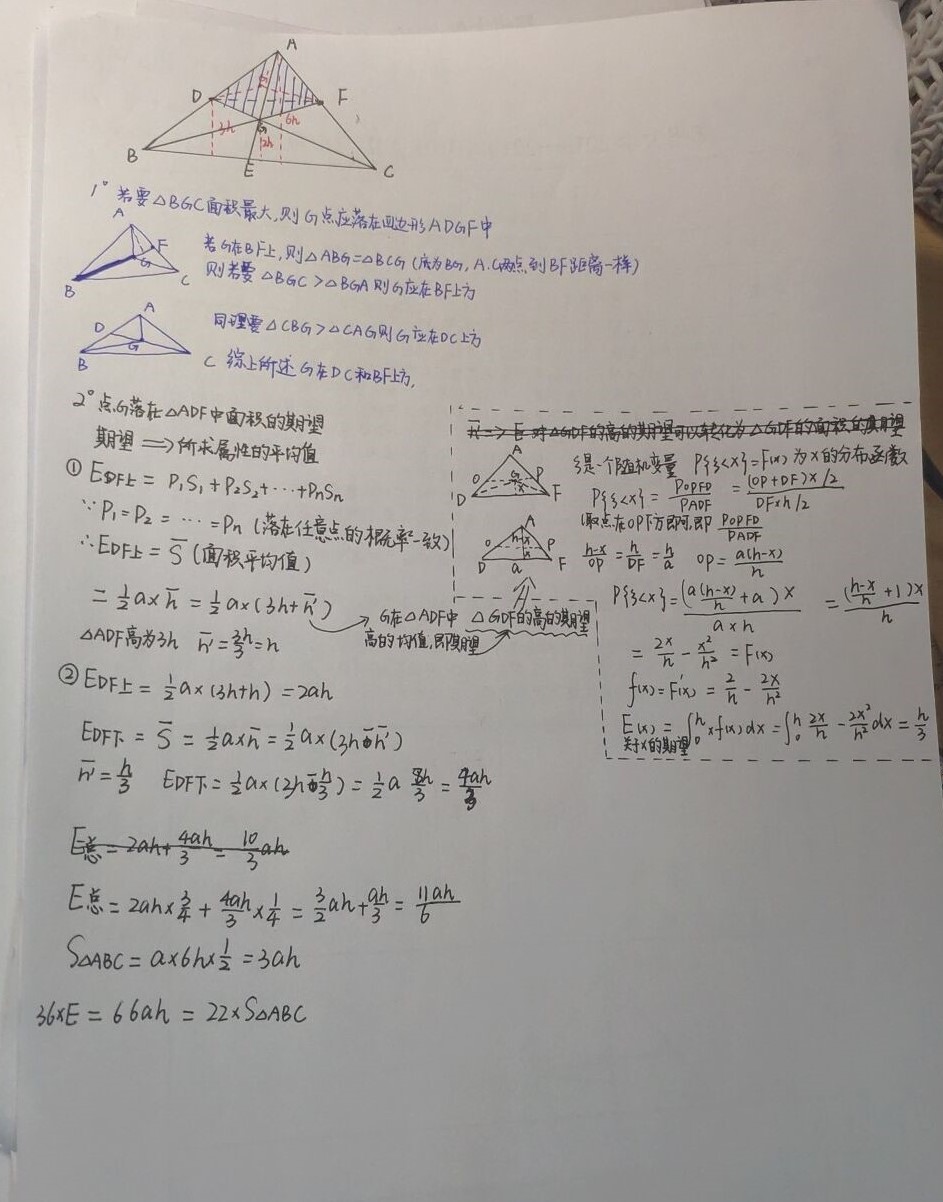 A
D
F
3h
6h
G
2h
B
E
C
1° 若要△BGC面积最大,则G点应落在四边形ADGF中
A
F
G
B
C
若G在BF上,则△ABG=△BCG(底为BG, A.C两点到BF距离一样)
则若要△BGC>△BGA则G应在BF上方
A
D
G
B
C
同理要△CBG>△CAG则G应在DC上方
综上所述G在DC和BF上方,
2° 点G落在△ADF中面积的期望
期望⟹所求属性的平均值
① EDF上 = P1S1+P2S2+···+PnSn
∵P1=P2= ··· =Pn (落在任意点的概率一致)
∴EDF上 = S̄ (面积平均值)
= 1/2 a×h̄ = 1/2 a×(3h+h̄')
△ADF高为3h h̄'=3h/3=h
G在△ADF中 △GDF的高的期望
高的均值,即期望
② EDF上 = 1/2 a×(3h+h) = 2ah
EDF下 = S̄ = 1/2 a×h̄ = 1/2 a×(3h-h̄')
h̄'=h/3 EDF下=1/2 a×(2h+h/3) = 1/2 a 8h/3 = 4ah/3
E总 = 2ah+4ah/3 = 10/3 ah
E总 = 2ah×3/4 + 4ah/3×1/4 = 3/2 ah+ah/3 = 11ah/6
S△ABC = a×6h×1/2 =3ah
36×E = 66ah = 22×S△ABC
对△GDF的高的期望可以转化为△GDF的面积的期望
A
O
P
G
x
D
F
ξ是一个随机变量 P{ξ<x}=F(x)为x的分布函数
P{ξ<x} = POPFD/PADF = (OP+DF)x/2 / DF×h/2
(取点在OP下方即可,即POPFD/PADF
A
O
h-x
P
x
D
a
F
h-x/OP = h/DF = h/a OP = a(h-x)/h
P{ξ<x} = (a(h-x)/h + a)x / a×h = (h-x/h + 1)x / h
= 2x/h - x²/h² = F(x)
f(x)=F'(x) = 2/h - 2x/h²
E(x) = ∫0^h x f(x)dx = ∫0^h 2x/h - 2x²/h² dx = h/3
关于x的期望